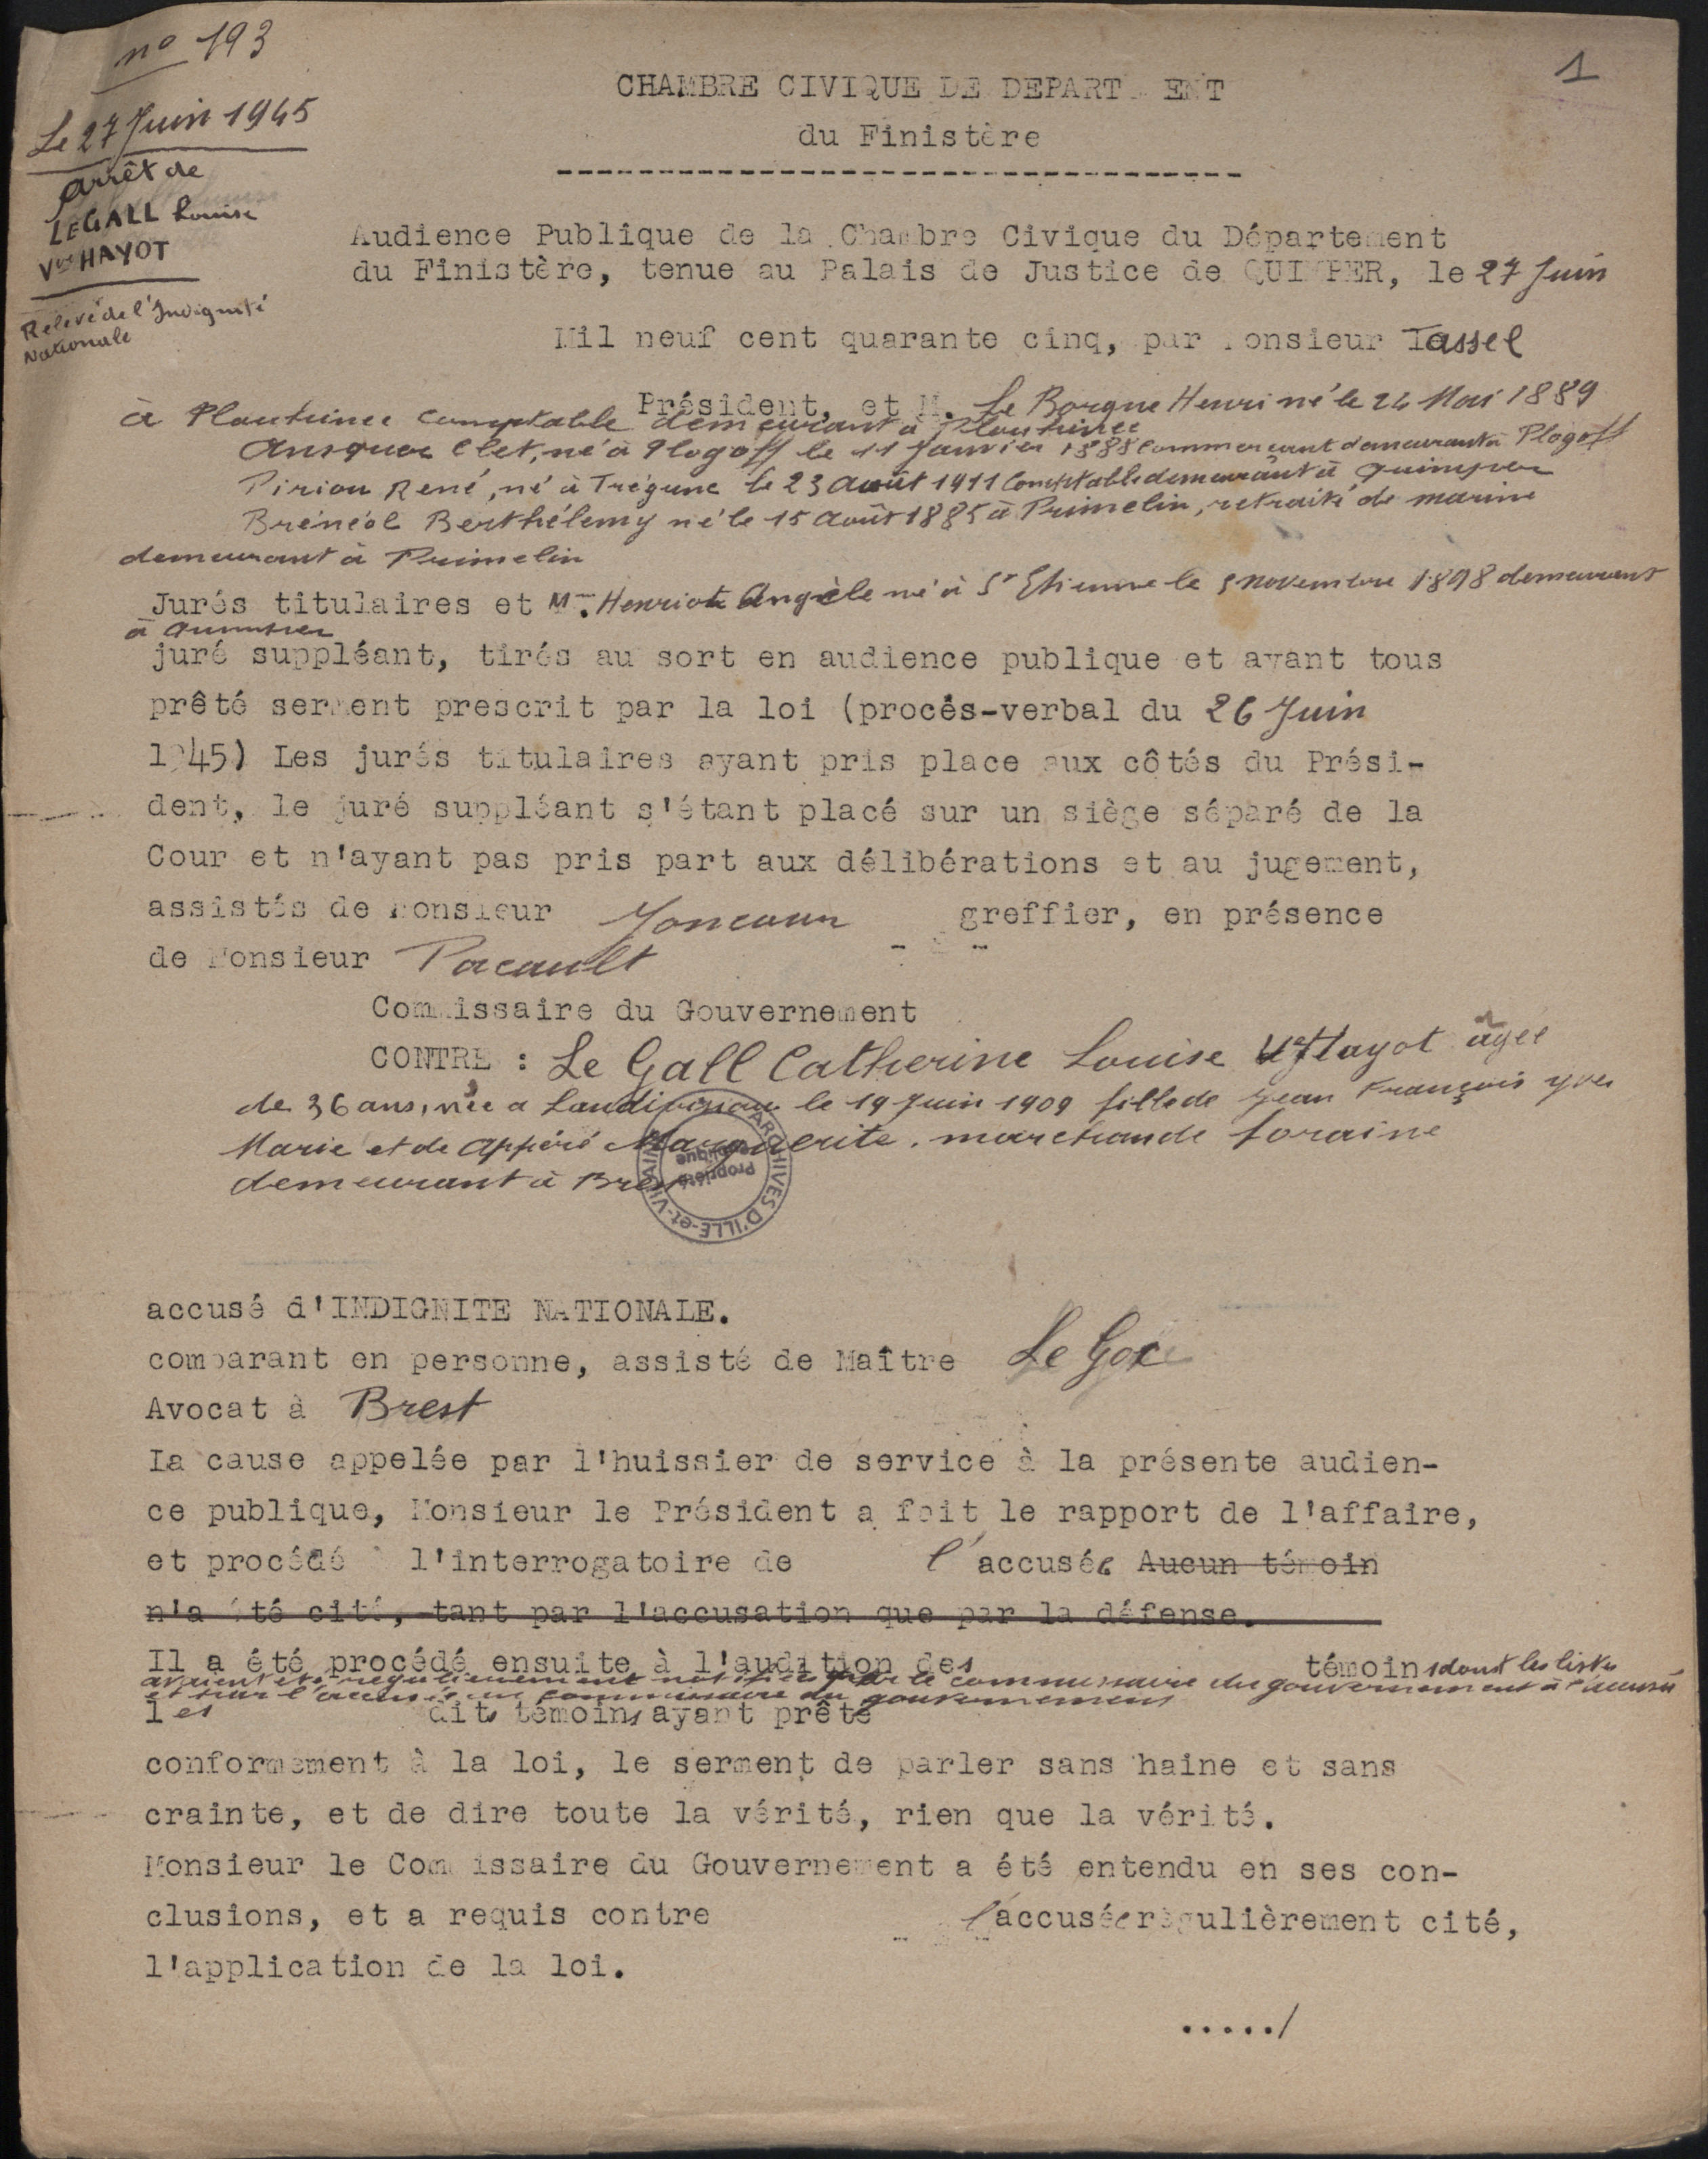 n° 193
1
Le 27 Juin 1945
arrêt de
LEGALL Louise
Vve HAYOT
Relevé de l'Indignité
Nationale
CHAMBRE CIVIQUE DE DEPARTEMENT
du Finistère
Audience Publique de la Chambre Civique du Département
du Finistère, tenue au Palais de Justice de QUIMPER, le 27 Juin
Mil neuf cent quarante cinq, par Monsieur Tassel
Président, et M. Le Borgne Henri né le 24 Mai 1889
à Plouhinec comptable demeurant à Plouhinec
Ansquer Clet, né à Plogoff le 11 Janvier 1888 Commerçant demeurant à Plogoff
Piriou René, né à Trégunc le 23 août 1911 Comptable demeurant à Quimper
Brénéol Berthélemy né le 15 août 1885 à Primelin, retraité de marine
demeurant à Primelin
Jurés titulaires et Mme Henriot Angèle né à St Etienne le 5 novembre 1898 demeurant
à Quimper
juré suppléant, tirés au sort en audience publique et ayant tous
prêté serment prescrit par la loi (procès-verbal du 26 Juin
1945) Les jurés titulaires ayant pris place aux côtés du Prési-
dent, le juré suppléant s'étant placé sur un siège séparé de la
Cour et n'ayant pas pris part aux délibérations et au jugement,
assistés de Monsieur Joncour greffier, en présence
de Monsieur Pacault
Commissaire du Gouvernement
CONTRE : Le Gall Catherine Louise Vve Hayot âgée
de 36 ans, née a Landivisiau le 19 Juin 1909 fille de Jean François Yves
Marie et de Appéré Marguerite. marchande foraine
demeurant à Brest
ARCHIVES D'ILLE-et-VILAINE
Propriété
publique
accusé d'INDIGNITE NATIONALE.
comparant en personne, assisté de Maître Le Goc
Avocat à Brest
La cause appelée par l'huissier de service à la présente audien-
ce publique, Monsieur le Président a fait le rapport de l'affaire,
et procédé à l'interrogatoire de l'accusée Aucun témoin
n'a été cité, tant par l'accusation que par la défense.
Il a été procédé ensuite à l'audition des témoins dont les listes
avaient été régulièrement notifiées par le commissaire du gouvernement à l'accusé
et par l'accusé au commissaire du gouvernement
les dits témoins ayant prêté
conformément à la loi, le serment de parler sans haine et sans
crainte, et de dire toute la vérité, rien que la vérité.
Monsieur le Commissaire du Gouvernement a été entendu en ses con-
clusions, et a requis contre l'accusée régulièrement cité,
l'application de la loi.
...../